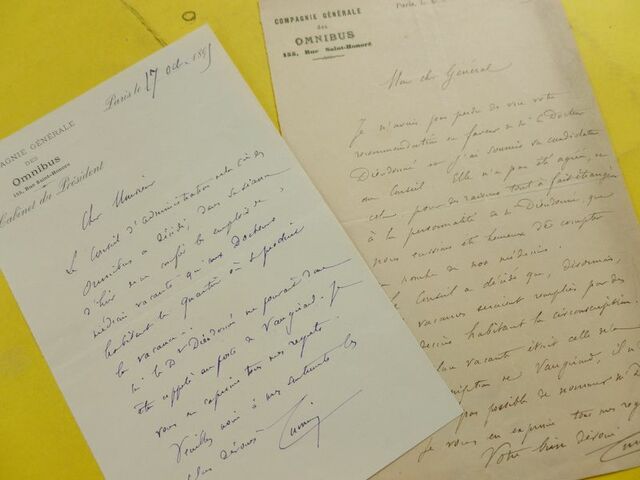 Paris le 17 Oct. 189
PAGNIE GÉNÉRALE
DES
Omnibus
155, Rue Saint-Honoré
Cabinet du Président
Cher Monsieur
Le Conseil d'administration de la Cie des
Omnibus a décidé, dans sa séance
d'hier, de ne confier les emplois de
médecin vacants qu'aux Docteurs
habitant le quartier où se produit
la vacance.
M. le Dr Dieudonné ne pouvait donc
être appelé au poste de Vaugirard. Je
vous en exprime tous mes regrets.
Veuillez croire à mes sentiments les
plus dévoués
COMPAGNIE GÉNÉRALE
des
OMNIBUS
155, Rue Saint-Honoré
Paris, l
Mon cher Général
Je n'avais pas perdu de vue votre
recommandation en faveur de M. le Docteur
Dieudonné et j'ai soumis sa candidature
au Conseil. Elle n'a pas été agréée, et
cela pour des raisons tout à fait étrangères
à la personnalité de M. Dieudonné, que
nous eussions été heureux de compter
au nombre de nos médecins.
Le Conseil a décidé que, désormais,
les vacances seraient remplies par des
decins habitant la circonscription.
vacante étant celle de
cription de Vaugirard, il n'
pas possible de nommer M. D
Je vous en exprime tous mes reg
Votre bien dévoué